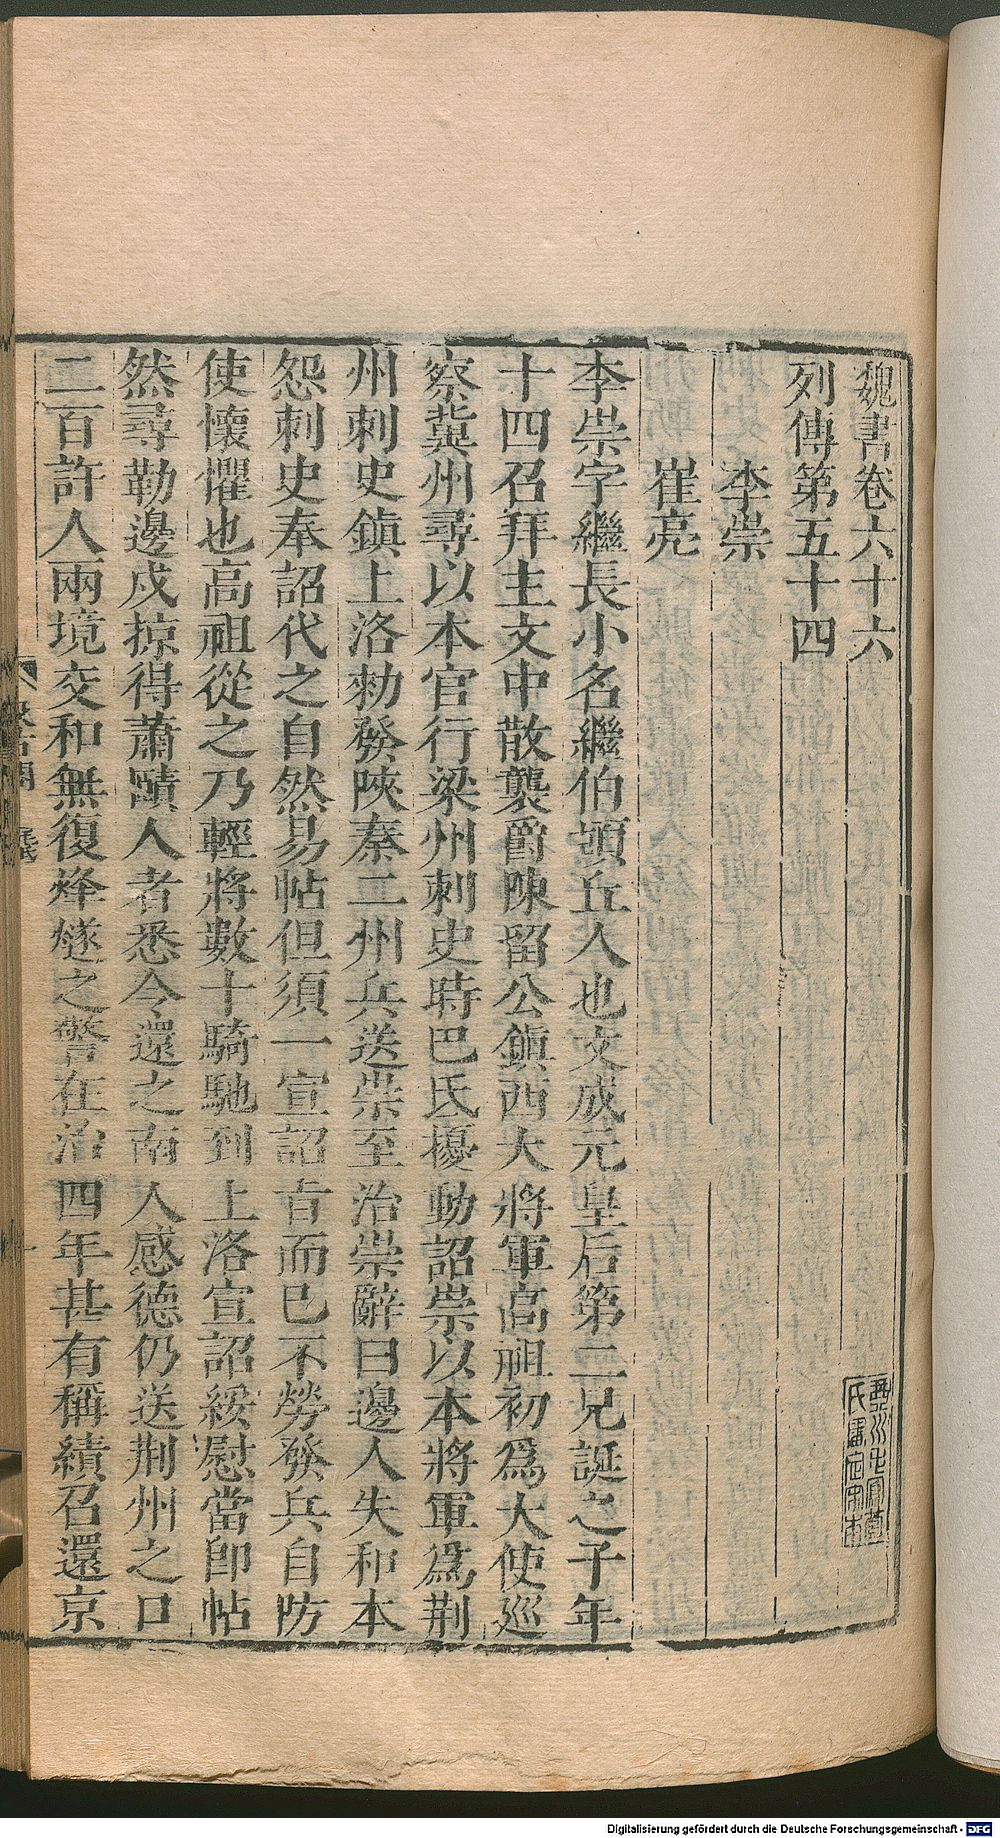 魏書卷六十六
列傳第五十四
李崇
崔亮
李崇字繼長小名繼伯頓丘人也文成元皇后第二兄誕之子年
十四召拜主文中散襲爵陳留公鎮西大將軍高祖初爲大使廵
察冀州尋以本官行梁州刺史時巴氐擾動詔崇以本將軍爲荆
州刺史鎮上洛勑發陝秦二州兵送崇至治崇辭曰邊人失和本
怨刺史奉詔代之自然易帖但須一宣詔㫖而已不勞發兵自防
使懷懼也高祖從之乃輕將數十騎馳到上洛宣詔綏慰當卽帖
然尋勒邊戍掠得蕭賾人者悉令還之南人感德仍送荆州之口
二百許人兩境交和無復烽燧之警在治四年甚有稱績召還京
汲古閣
毛氏
Digitalisierung gefördert durch die Deutsche Forschungsgemeinschaft - DFG